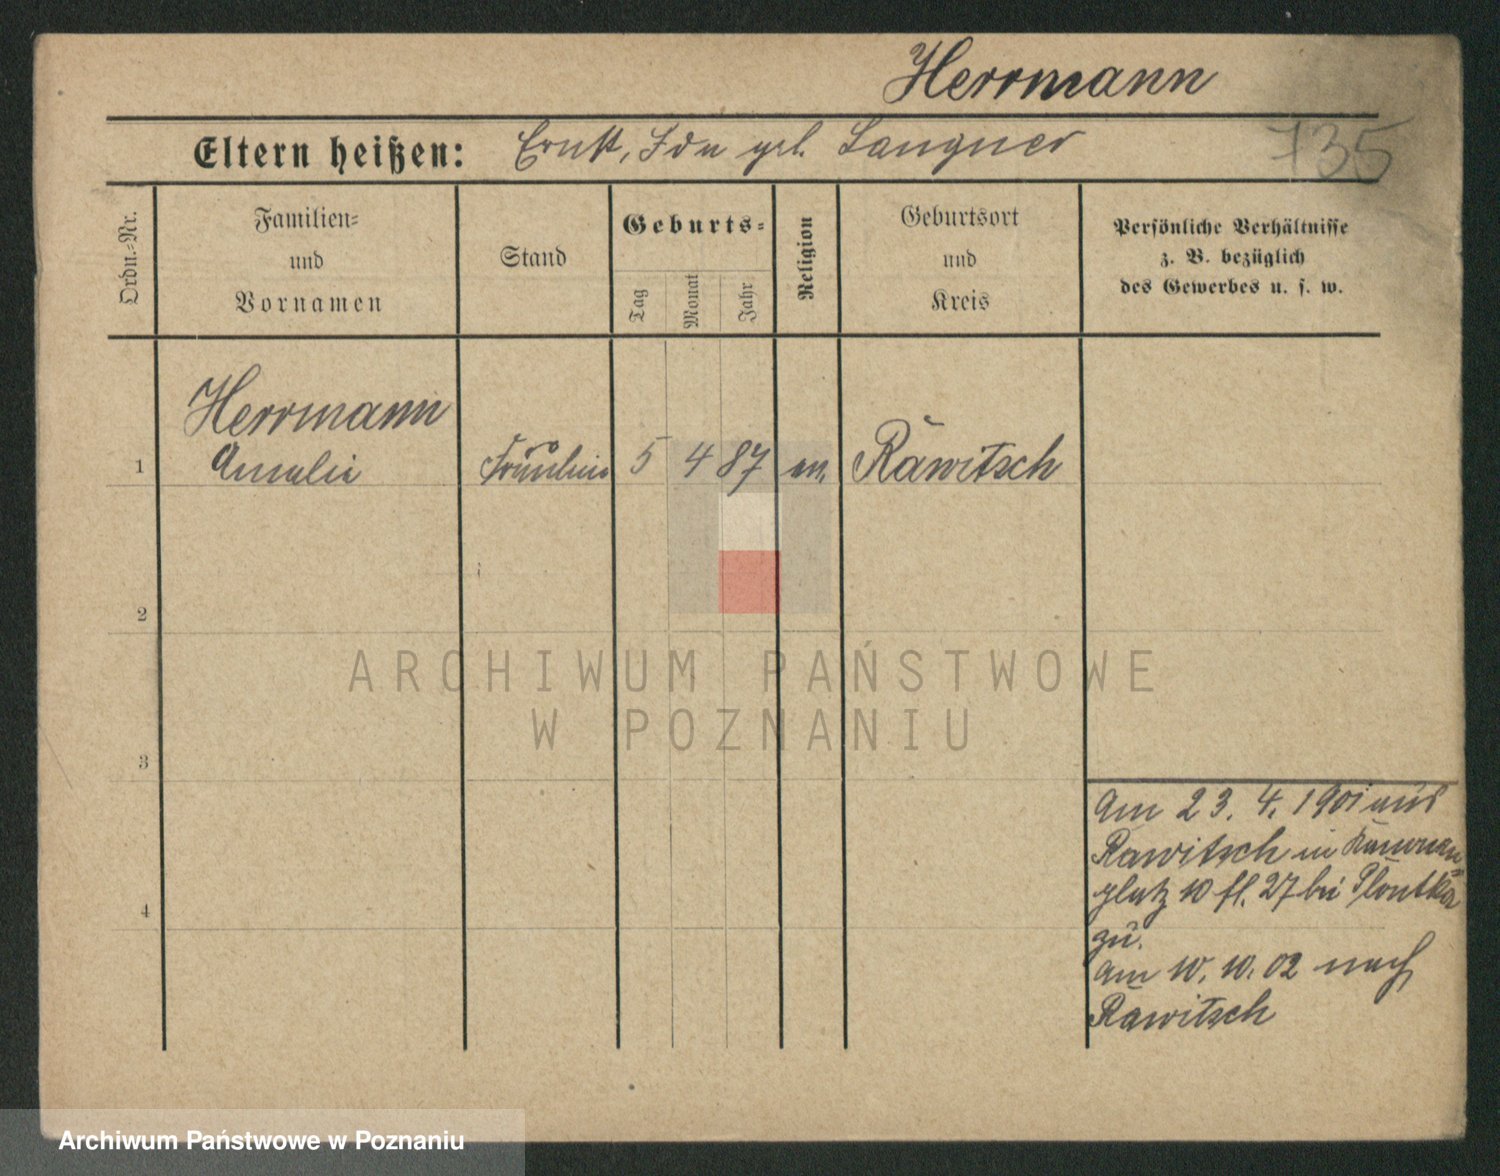 Herrmann
Eltern heißen: Ernst, Ida geb. Langner
735
Ordn.=Nr.
Familien=
und
Vornamen
Stand
Geburts=
Tag
Monat
Jahr
Religion
Geburtsort
und
Kreis
Persönliche Verhältnisse
z. B. bezüglich
des Gewerbes u. s. w.
Herrmann
1 Amalie Fräulein 5 4 87 ev. Rawitsch
2
3
4
Am 23. 4. 1901 aus
Rawitsch in Kanonen=
platz 10 fl. 27 bei Plontka
zu.
Am 10. 10. 02 nach
Rawitsch
ARCHIWUM PAŃSTWOWE
W POZNANIU
Archiwum Państwowe w Poznaniu